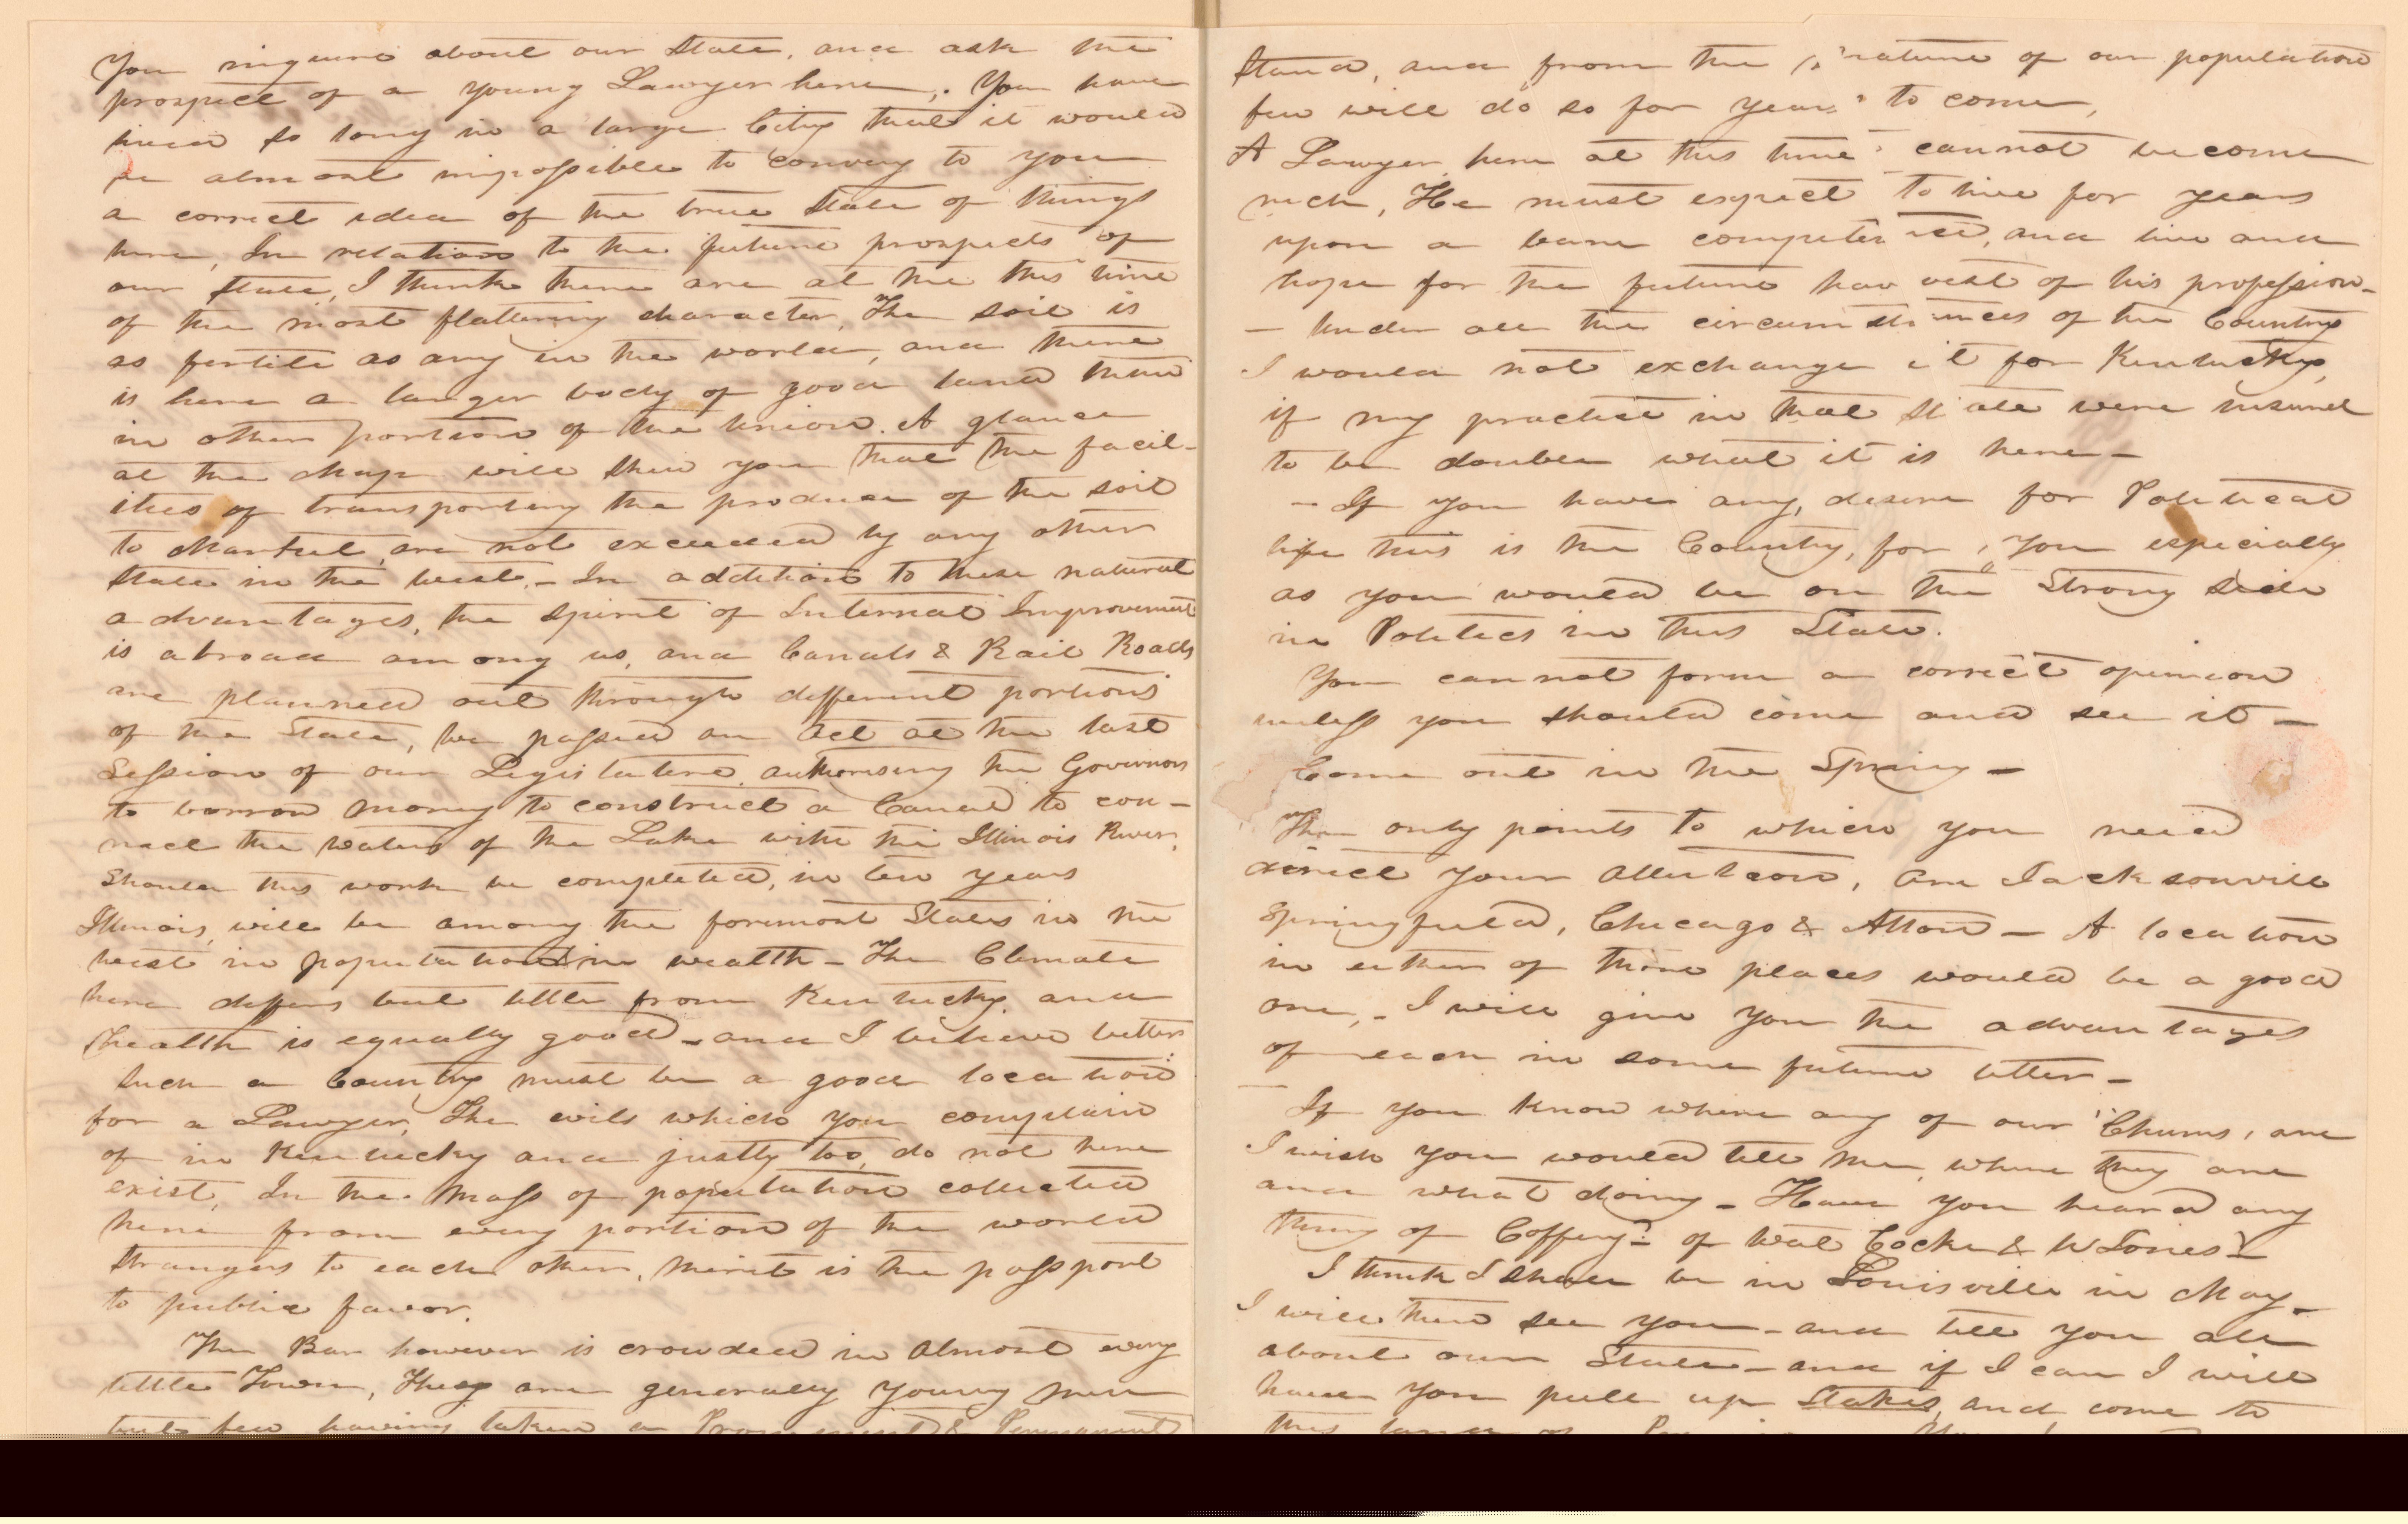 You inquire about our State, and ask the
prospect of a young Lawyer here,. You have
lived so long in a large City that it would
be almost impossible to convey to you
a correct idea of the true State of things
here, In relation to the future prospects of
our State, I think there are at the this time
of the most flattering character, The soil is
as fertile as any in the world, and there
is here a larger body of good land than
in other portion of the Union. A glance
at the Map will shew you that the facil-
ities of transporting the produce of the soil
to Market are not exceeded by any other
State in the West. - In addition to these natural
advantages, the spirit of Internal Improvement
is abroad among us, and Canals & Rail Roads
are planned out through different portions
of the State, We passed an Act at the last
Session of our Legislature authorising the Governor
to borrow money to construct a Canal to con-
nect the waters of the Lake with the Illinois River,
Should this work be completed, in ten years
Illinois, will be among the foremost States in the
West in population & in wealth - The Climate
here differs but little from Kentucky, and
health is equally good - and I believe better
Such a Country must be a good location
for a Lawyer, The evils which you complain
of in Kentucky and justly too, do not here
exist, In the mass of population collected
here from every portion of the world
strangers to each other, merit is the passport
to public favor.
The Bar however is crowded in almost every
little Town, They are generally young men
but few having taken a Prominent & Permanent
stand, and from the nature of our population
few will do so for years to come,
A Lawyer here at this time cannot become
rich, He must expect to live for years
upon a bare competence, and live and
hope for the future harvest of his profession -
- Under all the circumstances of the Country
I would not exchange it for Kentucky,
if my practice in that State were insured
to be double what it is here -
- If you have any desire for Political
life this is the Country, for you especially
as you would be on the Strong side
in Politics in this State.
You cannot form a correct opinion
unless you should come and see it -
Come out in the Spring -
The only points to which you need
direct your attention, are Jacksonville
Springfield, Chicago & Alton - A location
in either of those places would be a good
one, - I will give you the advantages
of each in some future letter -
If you know where any of our 'Chums, are
I wish you would tell me, where they are
and what doing - Have you heard any
thing of Coffery? of Wat Cocke & W Jones?
I think I shall be in Louisville in May -
I will then see you - and tell you all
about our State - and if I can I will
have you pull up Stakes, and come to
this land of